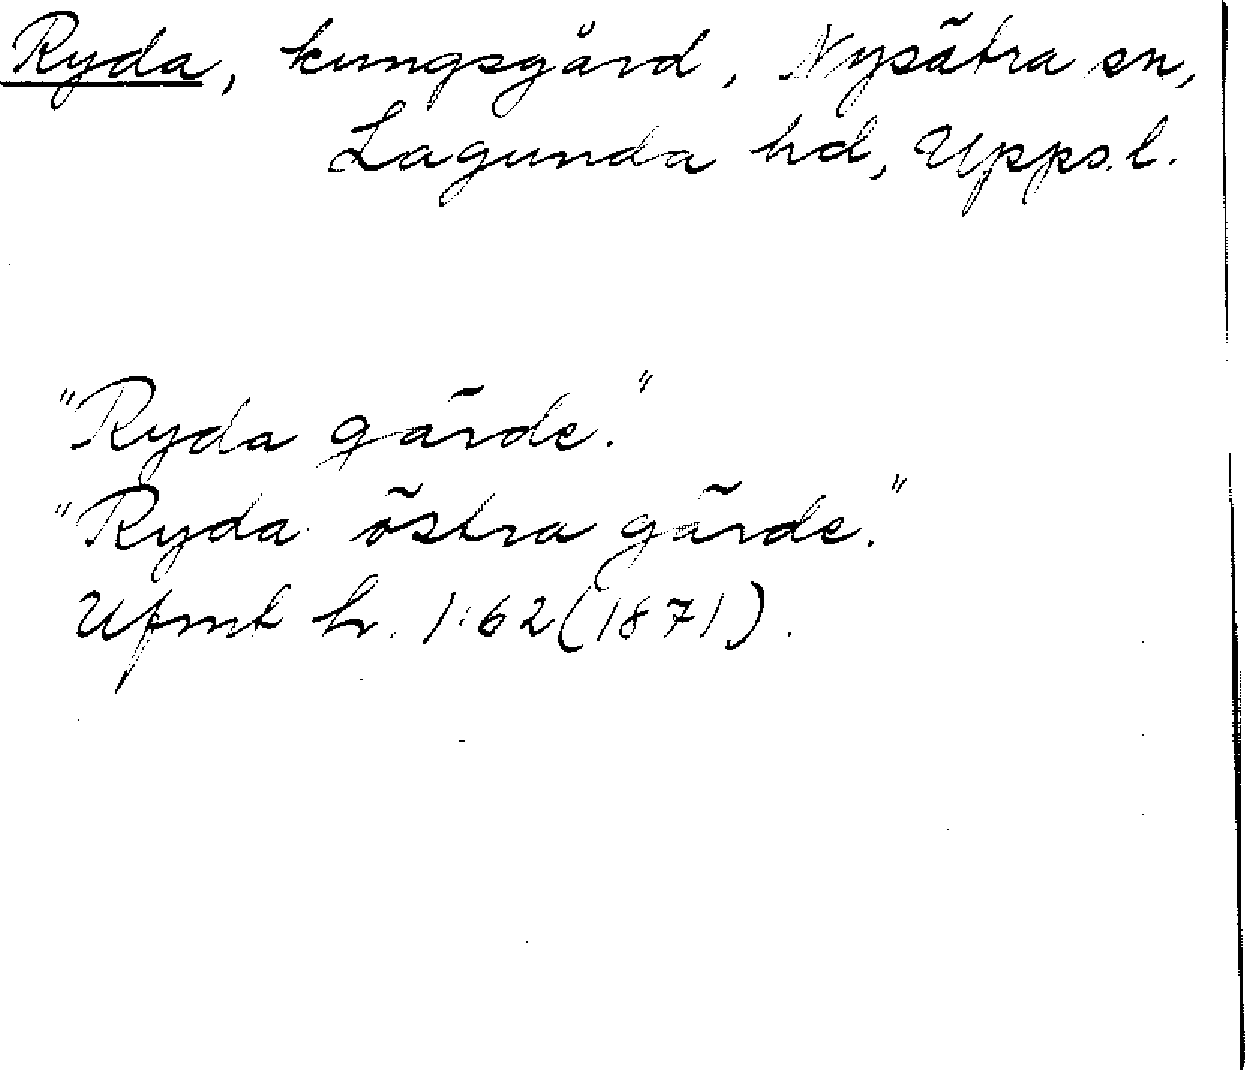 Ryda, kungsgård, Nysätra sn,
Lagunda hd, Upps.l.
"Ryda gärde."
"Ryda östra gärde."
Ufmt h. 1:62 (1871).